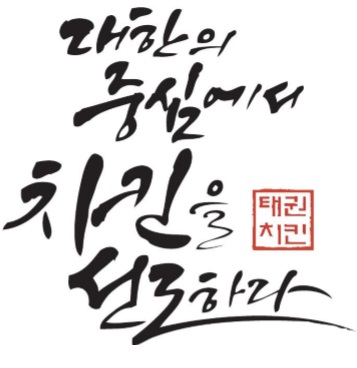 대한의
중심에서
치킨을
선도하라
태권
치킨